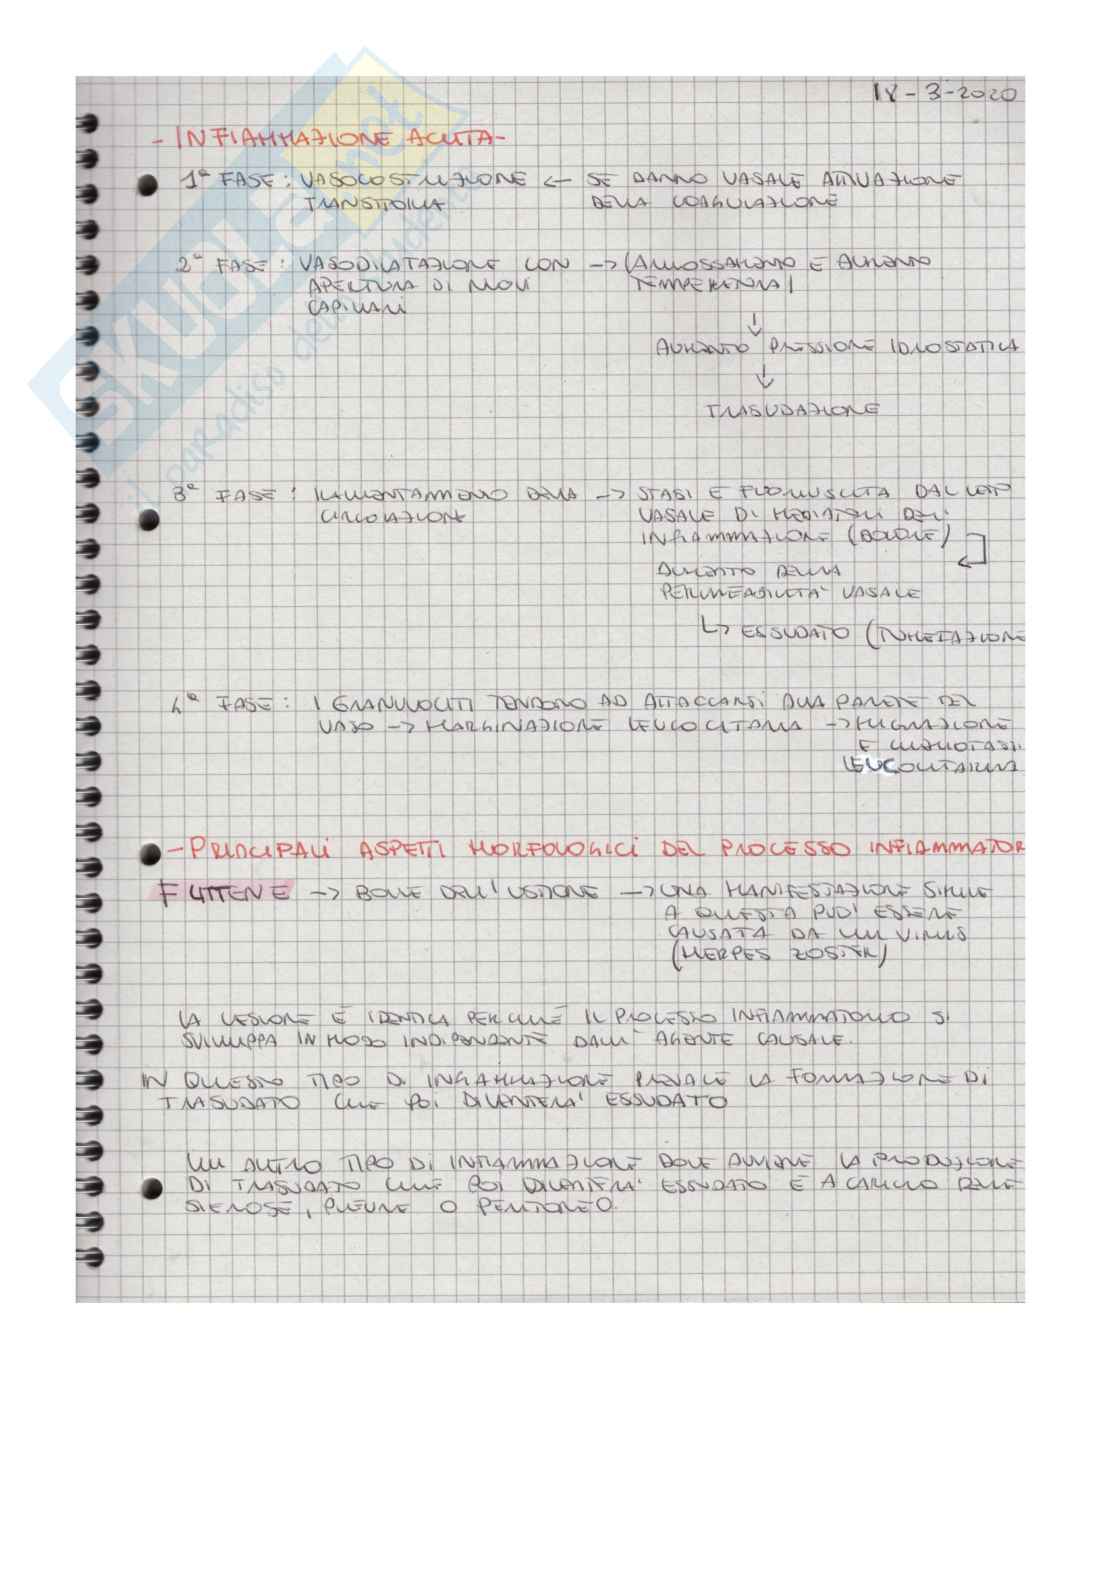 18-3-2020
- INFIAMMAZIONE ACUTA -
1ª FASE: VASOCOSTRIZIONE ← SE DANNO VASALE ATTIVAZIONE
TRANSITORIA DELLA COAGULAZIONE
2ª FASE: VASODILATAZIONE CON → (ARROSSAMENTO E AUMENTO
APERTURA DI NUOVI TEMPERATURA)
CAPILLARI
↓
AUMENTO PRESSIONE IDROSTATICA
↓
TRASUDAZIONE
3ª FASE: RALLENTAMENTO DELLA → STASI E FUORIUSCITA DAL LETTO
CIRCOLAZIONE VASALE DI MEDIATORI DELL'
INFIAMMAZIONE (DOLORE)
AUMENTO DELLA
PERMEABILITA' VASALE
↳ ESSUDATO (TUMEFAZIONE
4ª FASE: I GRANULOCITI TENDONO AD ATTACCARSI ALLA PARETE DEL
VASO → MARGINAZIONE LEUCOCITARIA → MIGRAZIONE
E CHEMIOTASSI
LEUCOCITARIA
- PRINCIPALI ASPETTI MORFOLOGICI DEL PROCESSO INFIAMMATOR
FLITTENE → BOLLE DELL'USTIONE → UNA MANIFESTAZIONE SIMILE
A QUESTA PUO' ESSERE
CAUSATA DA UN VIRUS
(HERPES ZOSTER)
LA LESIONE É IDENTICA PERCHÉ IL PROCESSO INFIAMMATORIO SI
SVILUPPA IN MODO INDIPENDENTE DALL'AGENTE CAUSALE.
IN QUESTO TIPO DI INFIAMMAZIONE PREVALE LA FORMAZIONE DI
TRASUDATO CHE POI DIVENTERA' ESSUDATO
UN ALTRO TIPO DI INFIAMMAZIONE DOVE AVVIENE LA PRODUZIONE
DI TRASUDATO CHE POI DIVENTERA' ESSUDATO E A CARICO DELLE
SIEROSE, PLEURE O PERITONEO.
SKUOLA.net
il paradiso dello